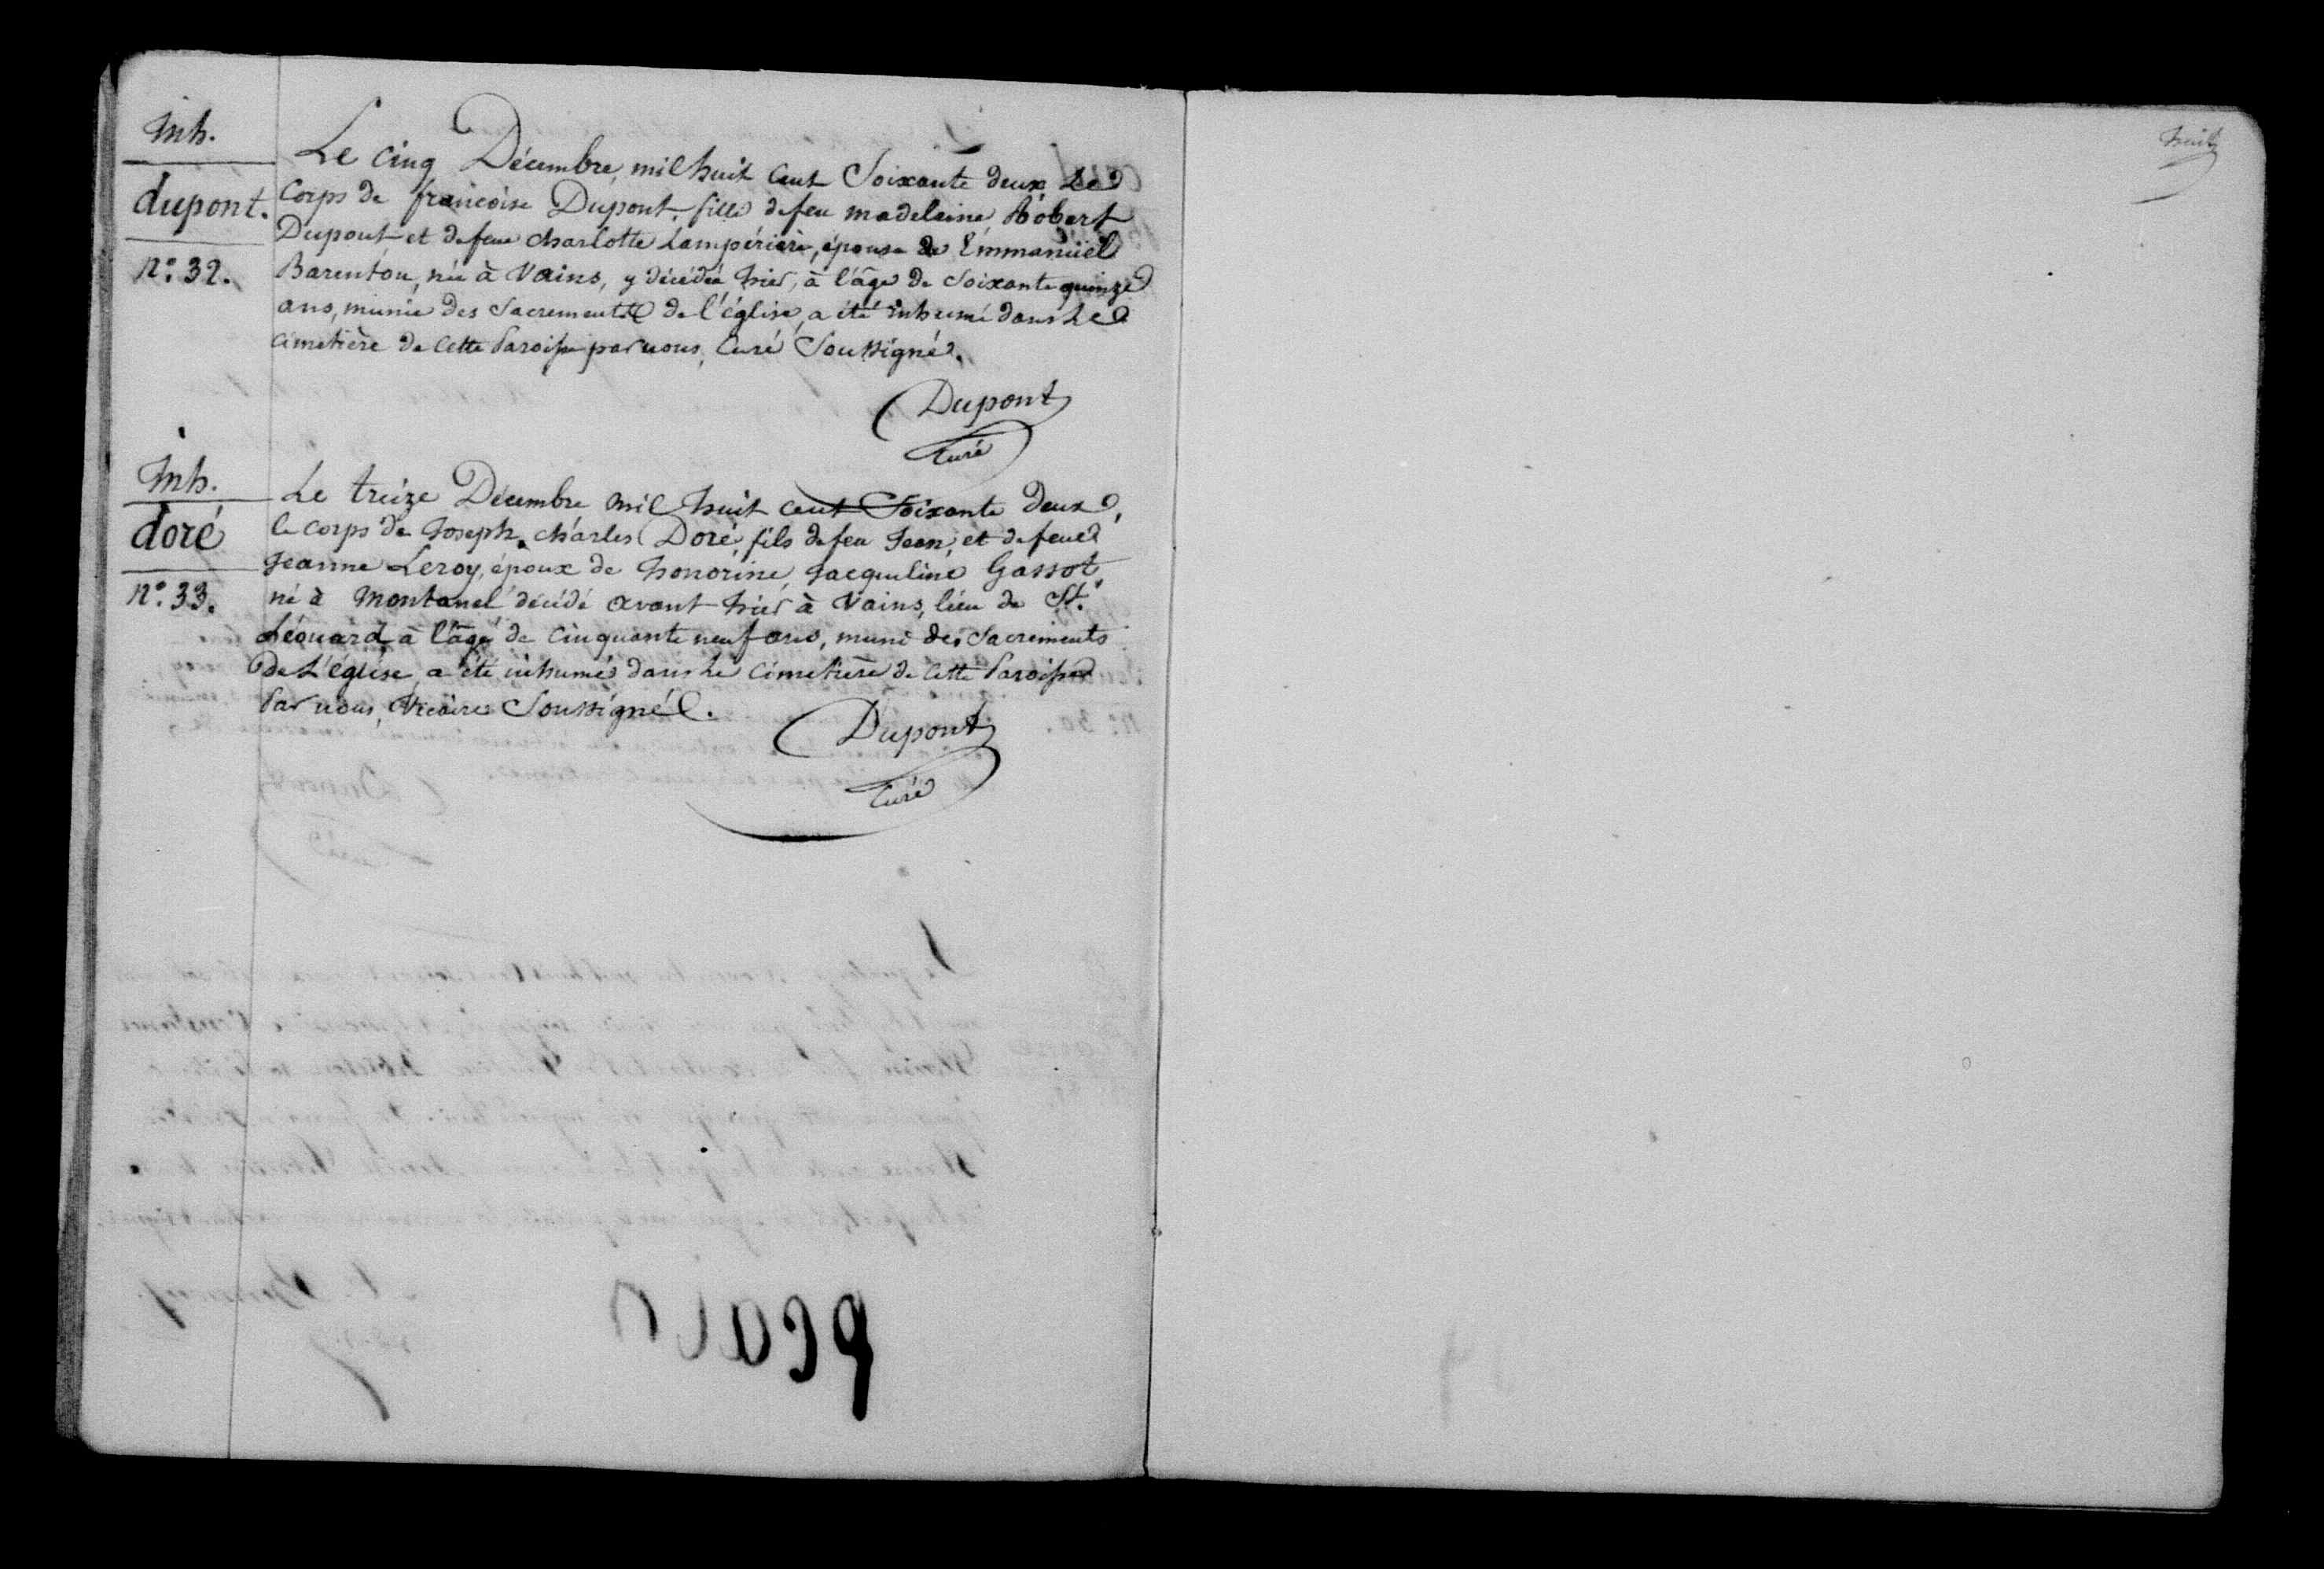 Inh.
dupont.
n.° 32.
Le cinq Décembre, mil huit cent Soixante deux, Le
Corps de françoise Dupont, fille de feu madelaine Robert
Dupont et de feue charlotte Lampérière, épouse de Emmanüel
Barenton, née à Vains, y décédée hier, à l'âge de Soixante quinze
ans, munie des Sacrements de l'église, a été inhumé dans Le
cimetière de cette Paroisse par nous, Curé Soussigné.
Dupont
Curé
Inh.
doré
n.° 33.
Le treize Décembre mil huit cent Soixante deux,
le corps de Joseph, charles Doré, fils de feu Jean, et de feue
Jeanne Leroy, époux de honorine, Jacqueline Gassot,
né à Montanel décédé avant hier à Vains, lieu de St.
Léonard, à l'âge de cinquante neuf ans, muni des Sacrements
de L'église, a été inhumé dans Le cimetière de cette Paroisse
Par nous, Vicaire Soussigné.
Dupont
Curé
huit